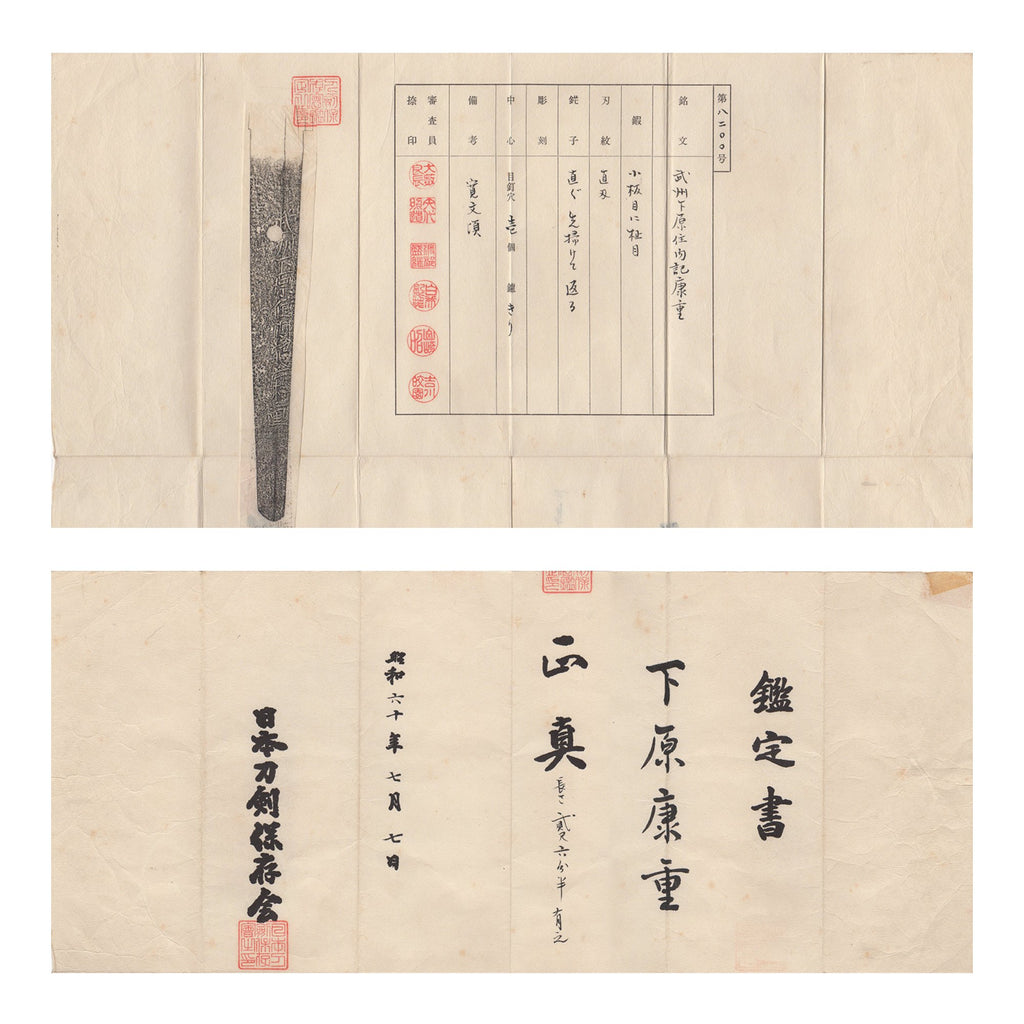 第八二〇〇号
銘文 武州下原住内記康重
鍜 小板目に柾目
刃紋 直刃
鋩子 直ぐ先掃けて返る
彫刻
中心 目釘穴 壱個 鑢 きり
備考 寛文頃
審査員捺印
鑑定書
下原康重
正真
長さ 貳尺六分半 有之
昭和六十年七月七日
日本刀剣保存会